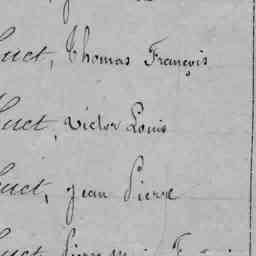 Huet, Thomas François
Huet, Victor Louis
Huet, Jean Pierre
Huet, Pierre